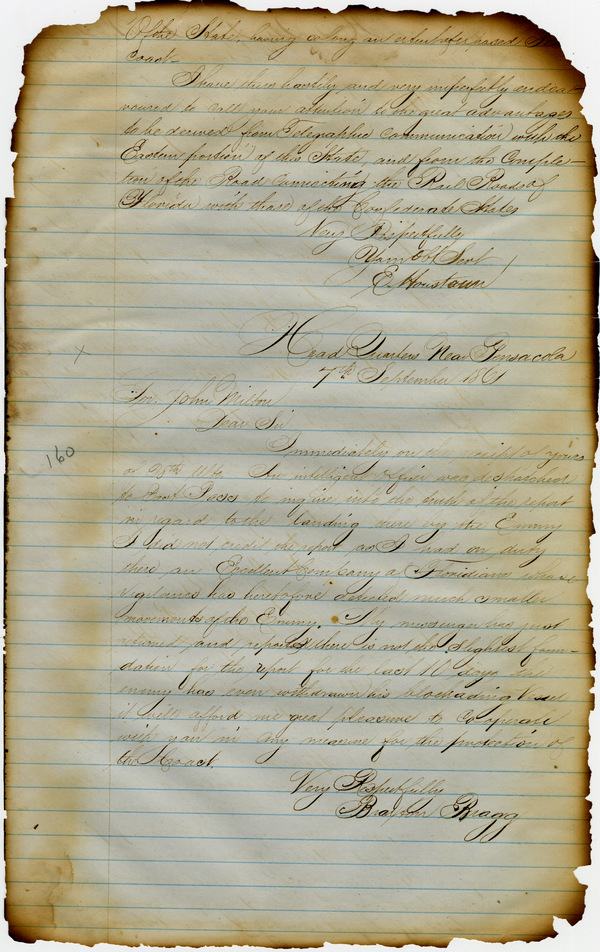 Of the State, having so long an extent of exposed Sea
Coast.
I have thus hastily and very imperfectly endea-
voured to call your attention to the great advantages
to be derived from Telegraphic Communication with the
Eastern portion of this State, and from the Comple-
tion of the Road Connecting the Rail Roads of
Florida with those of the Confederate States
Very Respectfully
Your Obt Servt
E. Houstoun
Head Quarters Near Pensacola
7th September 1861
160
Gov. John Milton
Dear Sir
Immediately on the receipt of yours
of 28th Ulto An intelligent officer was dispatched
to East Pass to inquire into the truth of the report
in regard to the landing there by the Enemy
I did not credit the report as I had on duty
there an Excellent Company of Floridians whose
vigilance has heretofore detected much smaller
movements of the Enemy. My messenger has just
returned and reports there is not the slightest foun-
dation for the report for the last 10 days the
enemy has even withdrawn his blockading Vessel
it will afford me great pleasure to Cooperate
with you in any measure for the protection of
the Coast.
Very Respectfully
Braxton Bragg